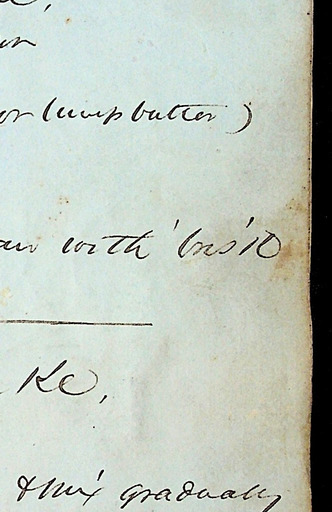 or lump butter)
with brisk
ke,
& mix gradually